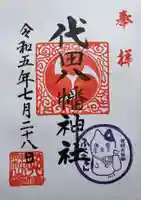 奉拝
代田八幡神社
令和五年七月二十八日